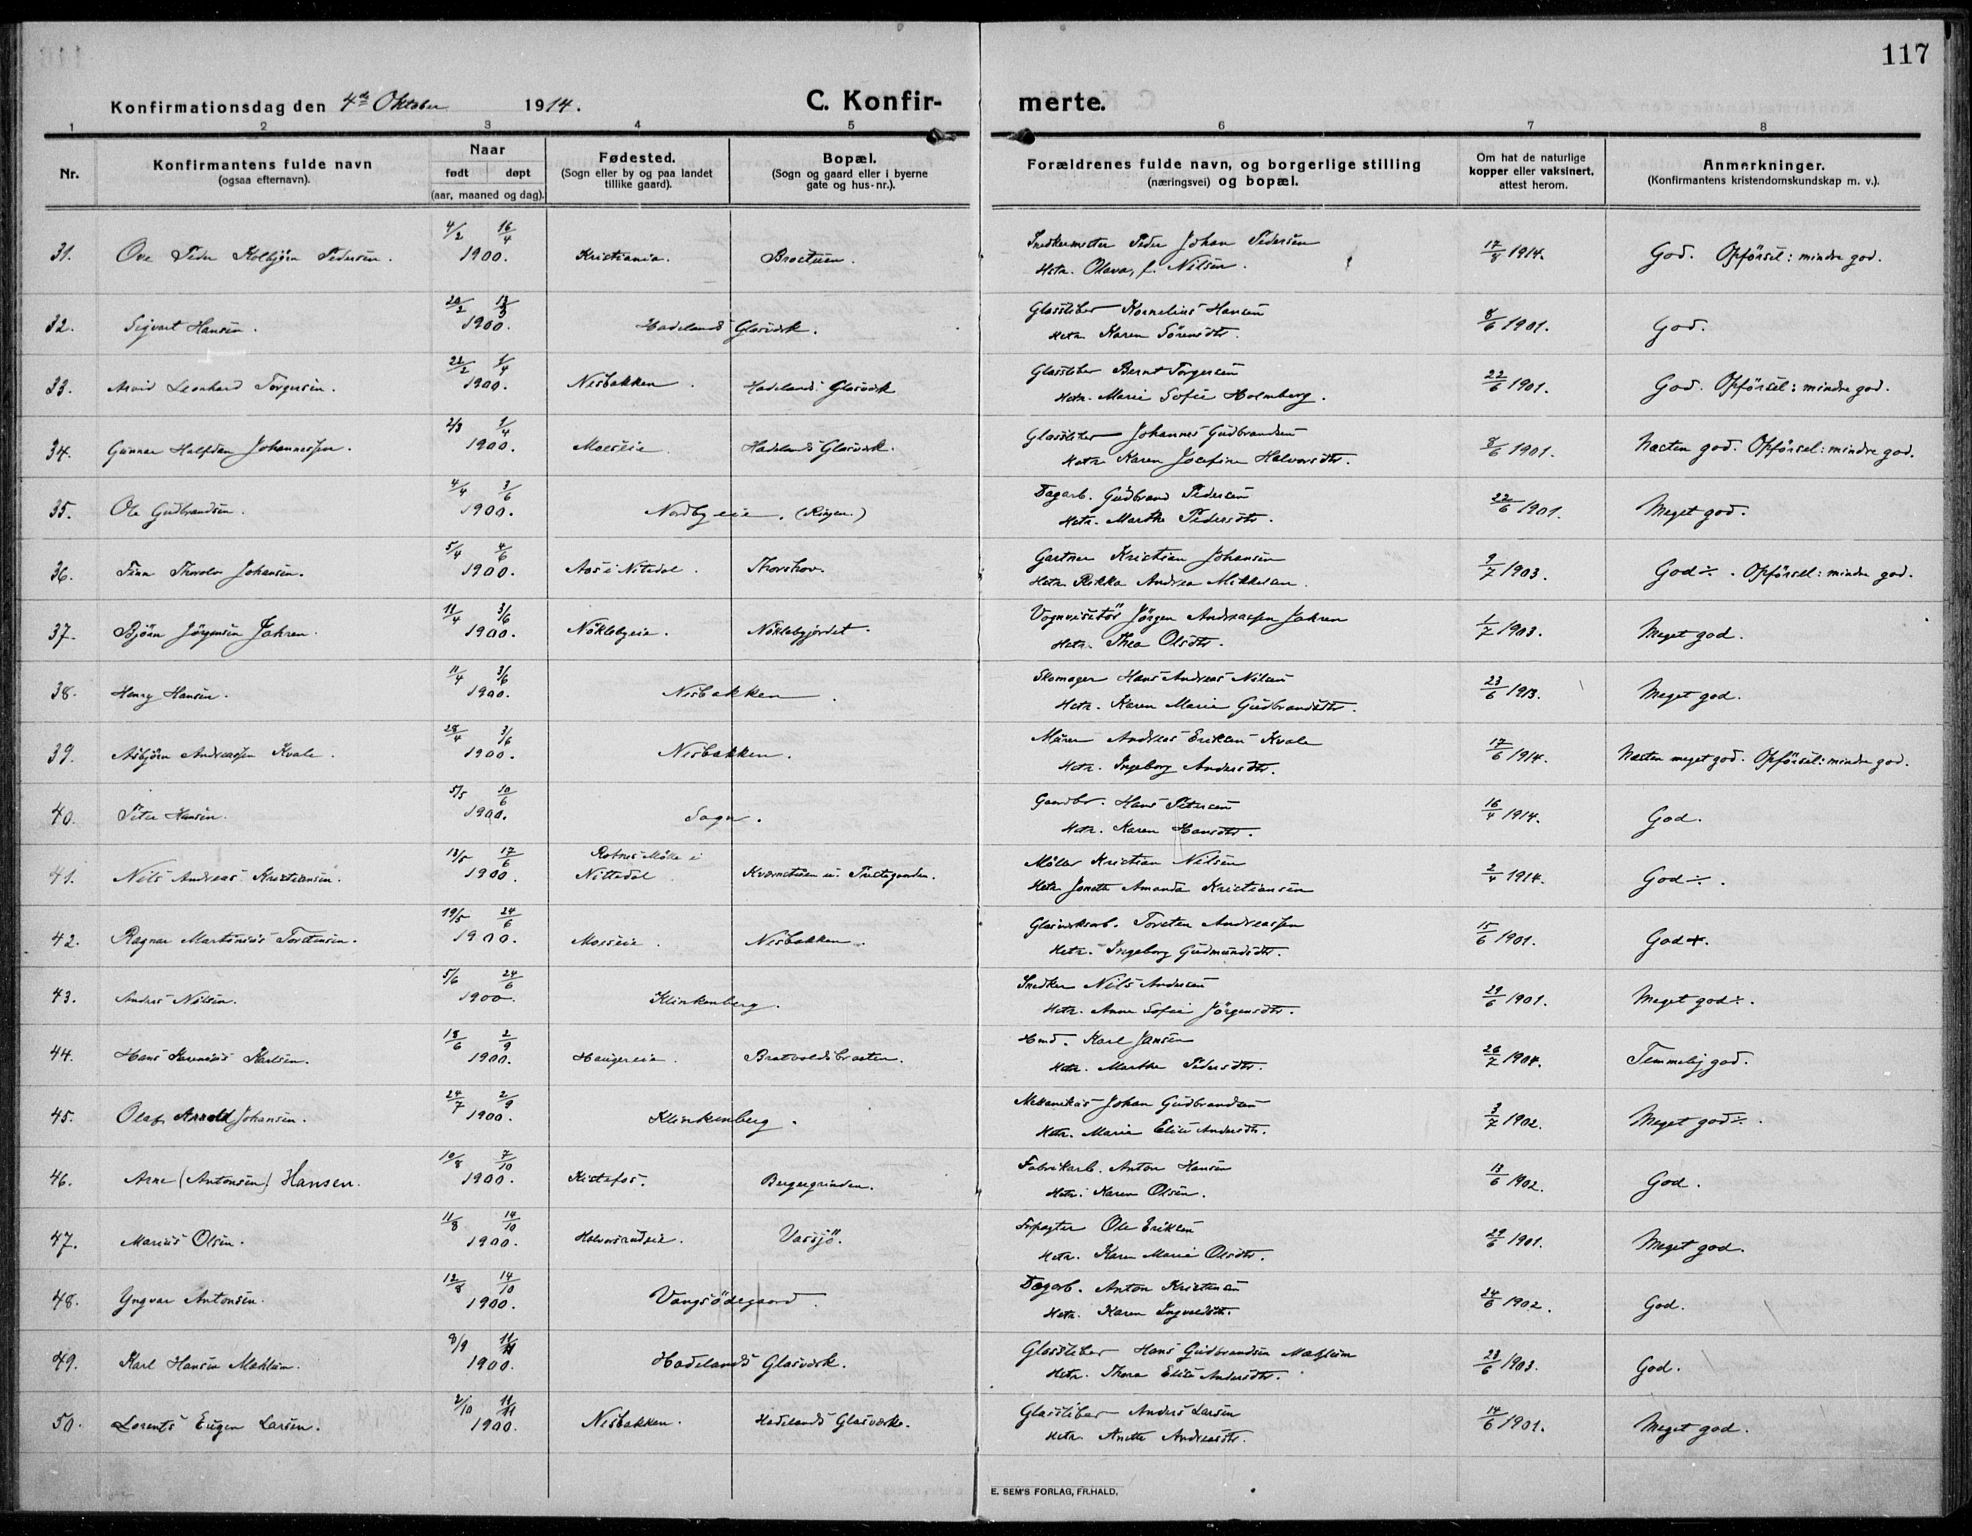 117
Konfirmationsdag den 4de Oktober 1914. C. Konfir- merte.
1 2 3 4 5 6 7 8
Nr.
Konfirmantens fulde navn
(ogsaa efternavn).
Naar
født døpt
(aar, maaned og dag).
Fødested.
(Sogn eller by og paa landet
tillike gaard).
Bopæl.
(Sogn og gaard eller i byerne
gate og hus-nr.).
Forældrenes fulde navn, og borgerlige stilling
(næringsvei) og bopæl.
Om hat de naturlige
kopper eller vaksinert,
attest herom.
Anmerkninger.
(Konfirmantens kristendomskundskap m. v.).
4/2 16/4 Snedkermester Peder Johan Pedersen
31. Ove Peder Kolbjørn Pedersen. 1900. Kristiania. 17/8 1914. God. Opførsel: mindre god.
Hstr. Olava, f. Nilsen.
20/2 1900. Glassliber Kornelius Hansen
32. Sigvart Hansen. Hadelands Glasværk. 8/6 1901. God.
Hstr. Karen Sørensdtr.
22/2 1/4 Glassliber Bernt Torgersen
33. Arvid Leonhard Torgersen. 1900. Nesbakken. Hadelands Glasværk 22/6 1901. God. Opførsel: mindre god.
Hstr. Marie Sofie Holmberg.
2/3 1/4 Glassliber Johannes Gudbrandsen
34. Gunnar Halfdan Johannessen. 1900. Moseeie. Hadelands Glasværk. 8/6 1901. Næsten god. Opførsel: mindre god.
Hstr. Karen Josefine Halvorsdtr.
4/4 3/6 Dagarb. Gudbrand Pedersen
35. Ole Gudbrandsen. 1900. Nordbyeie. (Ringen.) 22/6 1901. Meget god.
Hstr. Marthe Pedersdtr.
5/4 4/6 Gartner Kristian Johansen
36. Finn Thorolv Johansen. 1900. Aas i Nitedal. Thorshov. 9/7 1903. God÷. Opførsel: mindre god.
Hstr. Rikka Andrea Mikkelsen.
11/4 3/6 Vognvisitør Jørgen Andreassen Jahren
37. Bjørn Jørgensen Jahren. 1900. Nøklebyeie. Nøklebyjordet. 1/7 1903. Meget god.
Hstr. Thea Olsdtr.
11/4 3/6 Skomager Hans Andreas Nilsen
38. Henry Hansen. 1900. Nesbakken. 23/6 1913. Meget god.
Hstr. Karen Marie Gudbrandsdtr.
28/4 3/6 Murer Andreas Eriksen Kvale
39. Asbjørn Andreassen Kvale. 1900. Nesbakken. 17/6 1914. Næsten meget god. Opførsel: mindre god.
Hstr. Ingeborg Andersdtr.
5/5 10/6 Gaardbr. Hans Petersen
40. Peter Hansen. 1900. Sogn. 16/4 1914. God.
Hstr. Karen Hansdtr.
13/5 17/6 Rotnes Mølle i Møller Kristian Nilsen
41. Nils Andreas Kristiansen. 1900. Nittedal. 2/4 1914. God÷.
Hstr. Jonette Amanda Kristiansen
19/5 24/6 Glasværksarb. Torsten Andreassen
42. Ragnar Martinius Torstensen. 1900. Moseeie. Nesbakken. 15/6 1901. God+.
Hstr. Ingeborg Gudmundsdtr.
5/6 24/6 Snedker Nils Andersen
43. Anders Nilsen. 1900. Klinkenberg. 29/6 1901. Meget god÷.
Hstr. Anne Sofie Jørgensdtr.
18/6 2/9 Hmd. Karl Jansen
44. Hans Karenius Karlsen. 1900. Haugereie. Bratvoldsbraaten. 26/7 1904. Temmelig god.
Hstr. Marthe Pedersdtr.
24/7 2/9 Mekanikus Johan Gudbrandsen
45. Olaf Arnold Johansen. 1900. Klinkenberg. 3/7 1902. Meget god÷.
Hstr. Marie Elise Andersdtr.
10/8 7/10 Fabrikarb. Anton Hansen
46. Arne (Antonsen) Hansen. 1900. Kistefos. Bergergrinden. 13/6 1902. God.
Hstr. Karen Olsen.
11/8 14/10 Forpagter Ole Eriksen
47. Marius Olsen. 1900. Halvorsrudeie. Vassjø. 29/6 1901. Meget god.
Hstr. Karen Marie Olsdtr.
12/8 14/10 Dagarb. Anton Kristiansen
48. Yngvar Antonsen. 1900. Vangsødegaard. 24/6 1902. God.
Hstr. Karen Ingvaldsdtr.
8/9 11/11 Glassliber Hans Gudbrandsen Mæhlum
49. Karl Hansen Mæhlum. 1900. Hadelands Glasværk. 23/6 1903. God.
Hstr. Thora Elise Andersdtr.
2/10 11/11 Glassliber Anders Larsen
50. Lorents Eugen Larsen. 1900. Nesbakken. Hadelands Glasværk. 14/6 1901. Meget god.
Hstr. Anette Andreasdtr.
E. SEM'S FORLAG, FR.HALD.